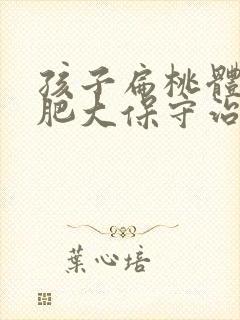 孩子扁桃體
肥大保守治
葉心培